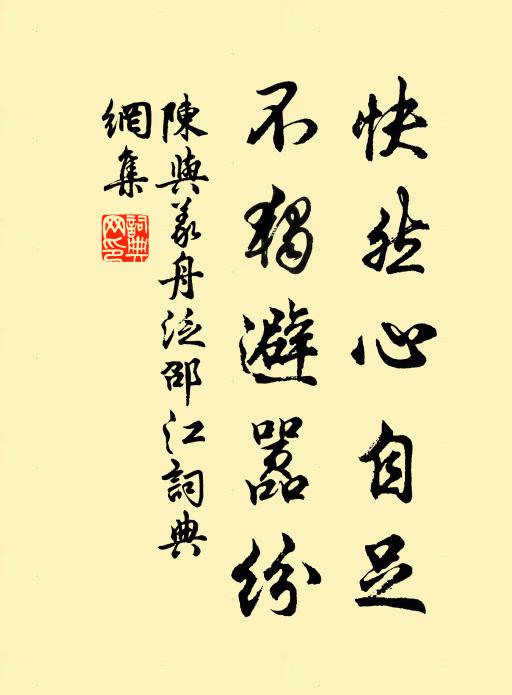 快然心自足
不獨避嚣紛
陳與義舟泛邵江詞典
網集
詞典
网印